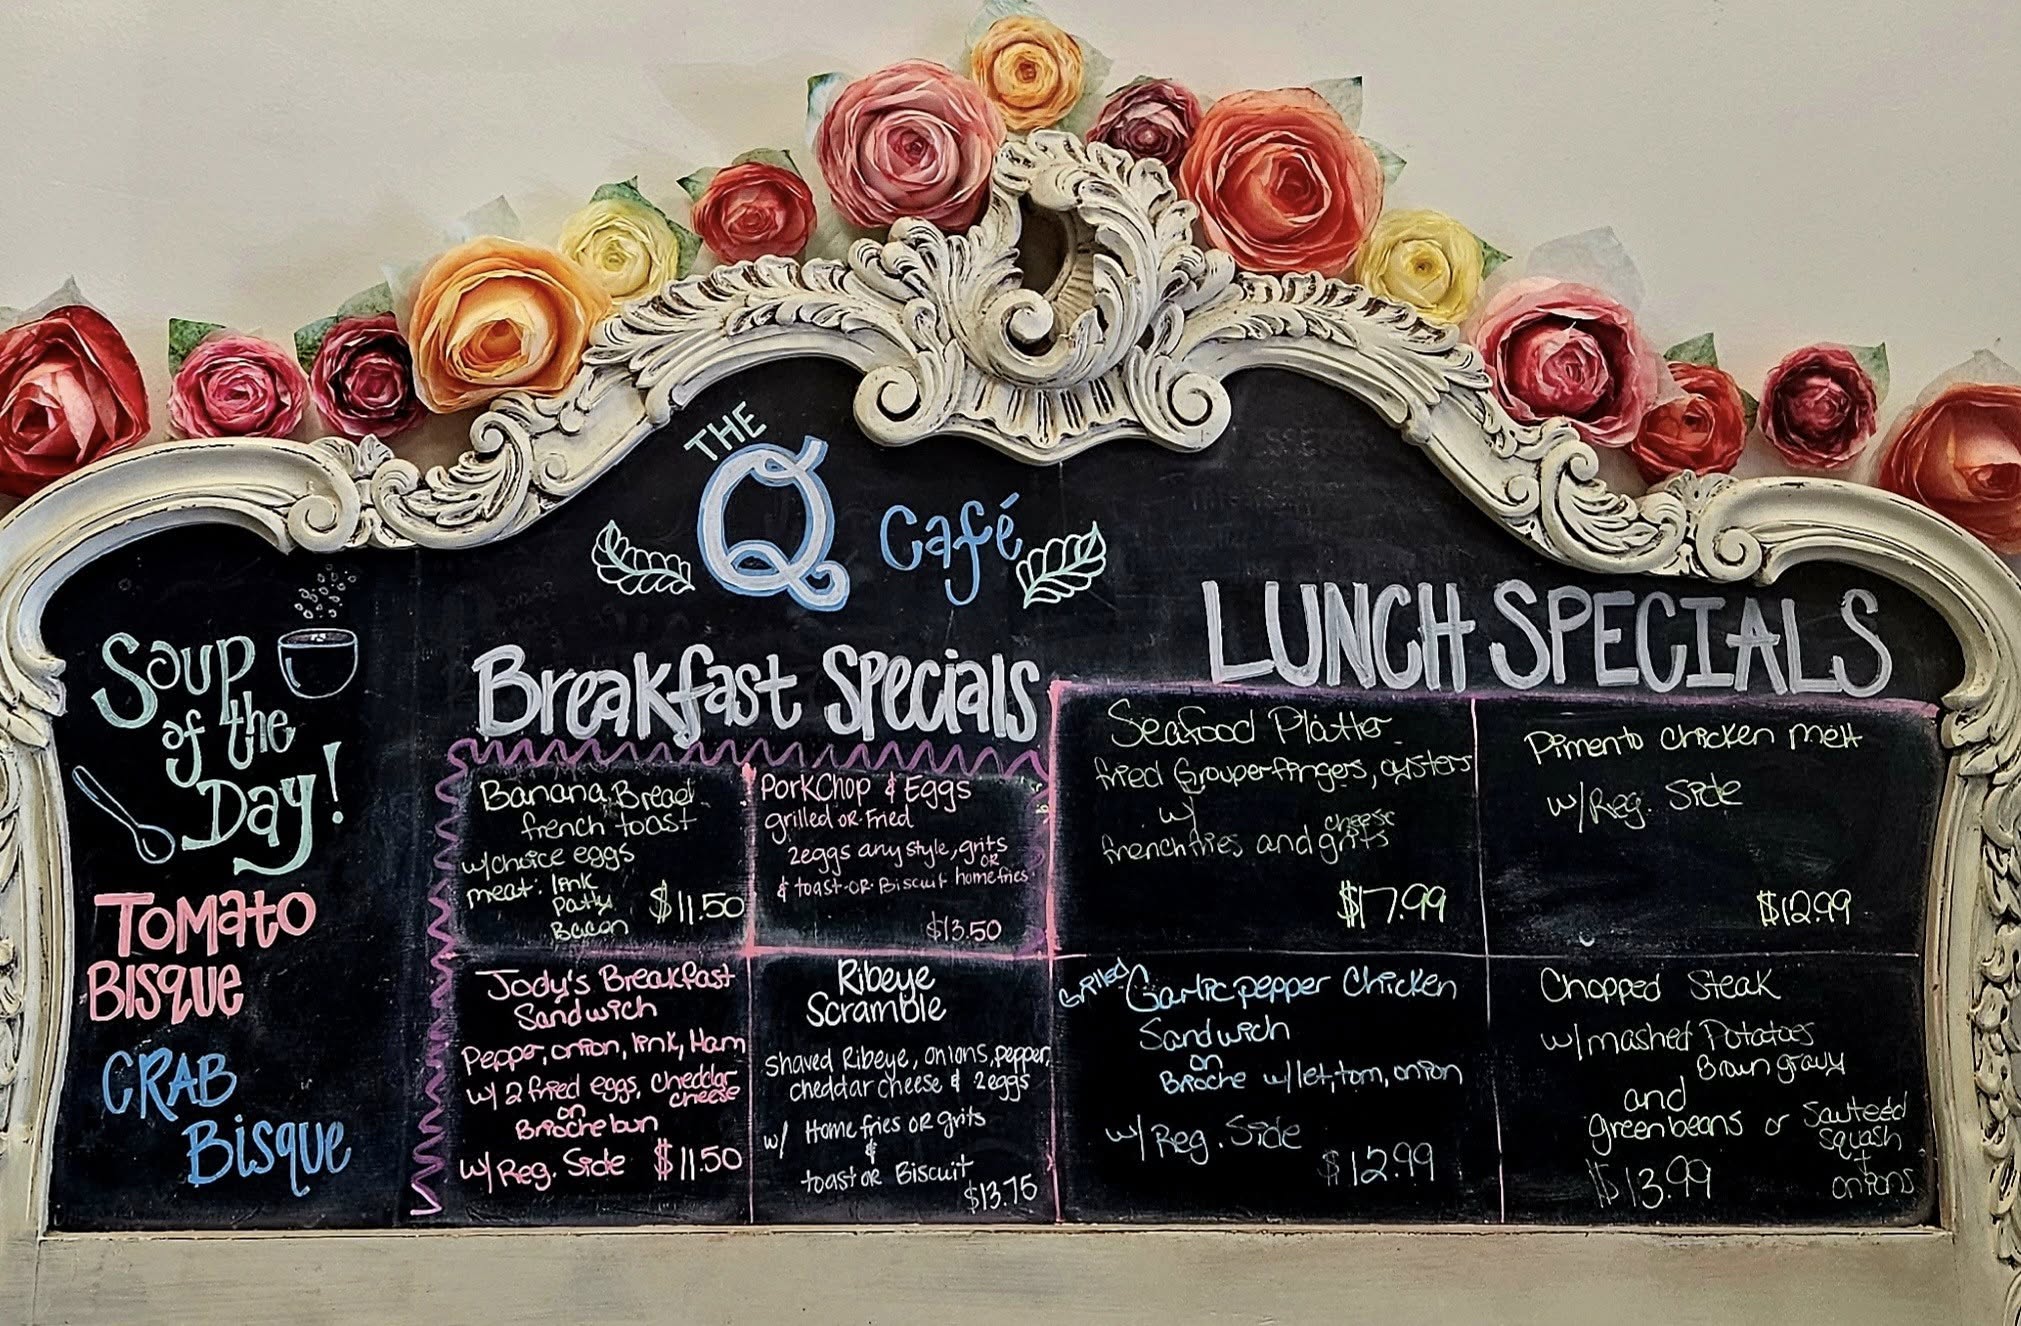 THE
Q Café
Soup
of the
Day!
TOMATO
BISQUE
CRAB
Bisque
Breakfast Specials
Banana Bread
french toast
w/choice eggs
meat: link
patty
Bacon
$11.50
PorkChop & Eggs
grilled OR Fried
2eggs any style, grits
OR
& toast OR Biscuit homefries
$13.50
Jody's Breakfast
Sandwich
Pepper, onion, link, Ham
w/ 2 fried eggs, cheddar
cheese
on
Brioche bun
w/ Reg. Side $11.50
Ribeye
Scramble
Shaved Ribeye, onions, pepper,
cheddar cheese & 2eggs
w/ Home fries OR grits
&
toast OR Biscuit
$13.75
LUNCH SPECIALS
Seafood Platter
fried Grouper fingers, oysters
w/
cheese
french fries and grits
$17.99
Pimento chicken melt
w/Reg. Side
$12.99
Grilled Garlic pepper Chicken
Sandwich
on
Brioche w/let, tom, onion
w/ Reg. Side
$12.99
Chopped Steak
w/mashed Potatoes
Brown gravy
and
greenbeans or Sauteed
squash
+
onions
$13.99